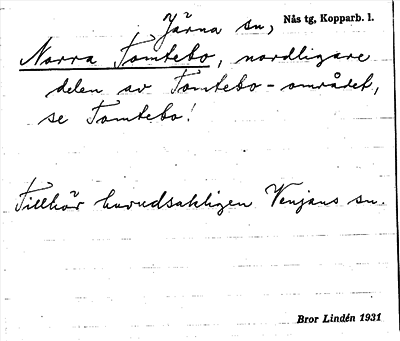 Järna sn, Nås tg, Kopparb. l.
Norra Tomtebo, nordligare
delen av Tomtebo-området,
se Tomtebo!
Tillhör huvudsakligen Venjans sn.
Bror Lindén 1931